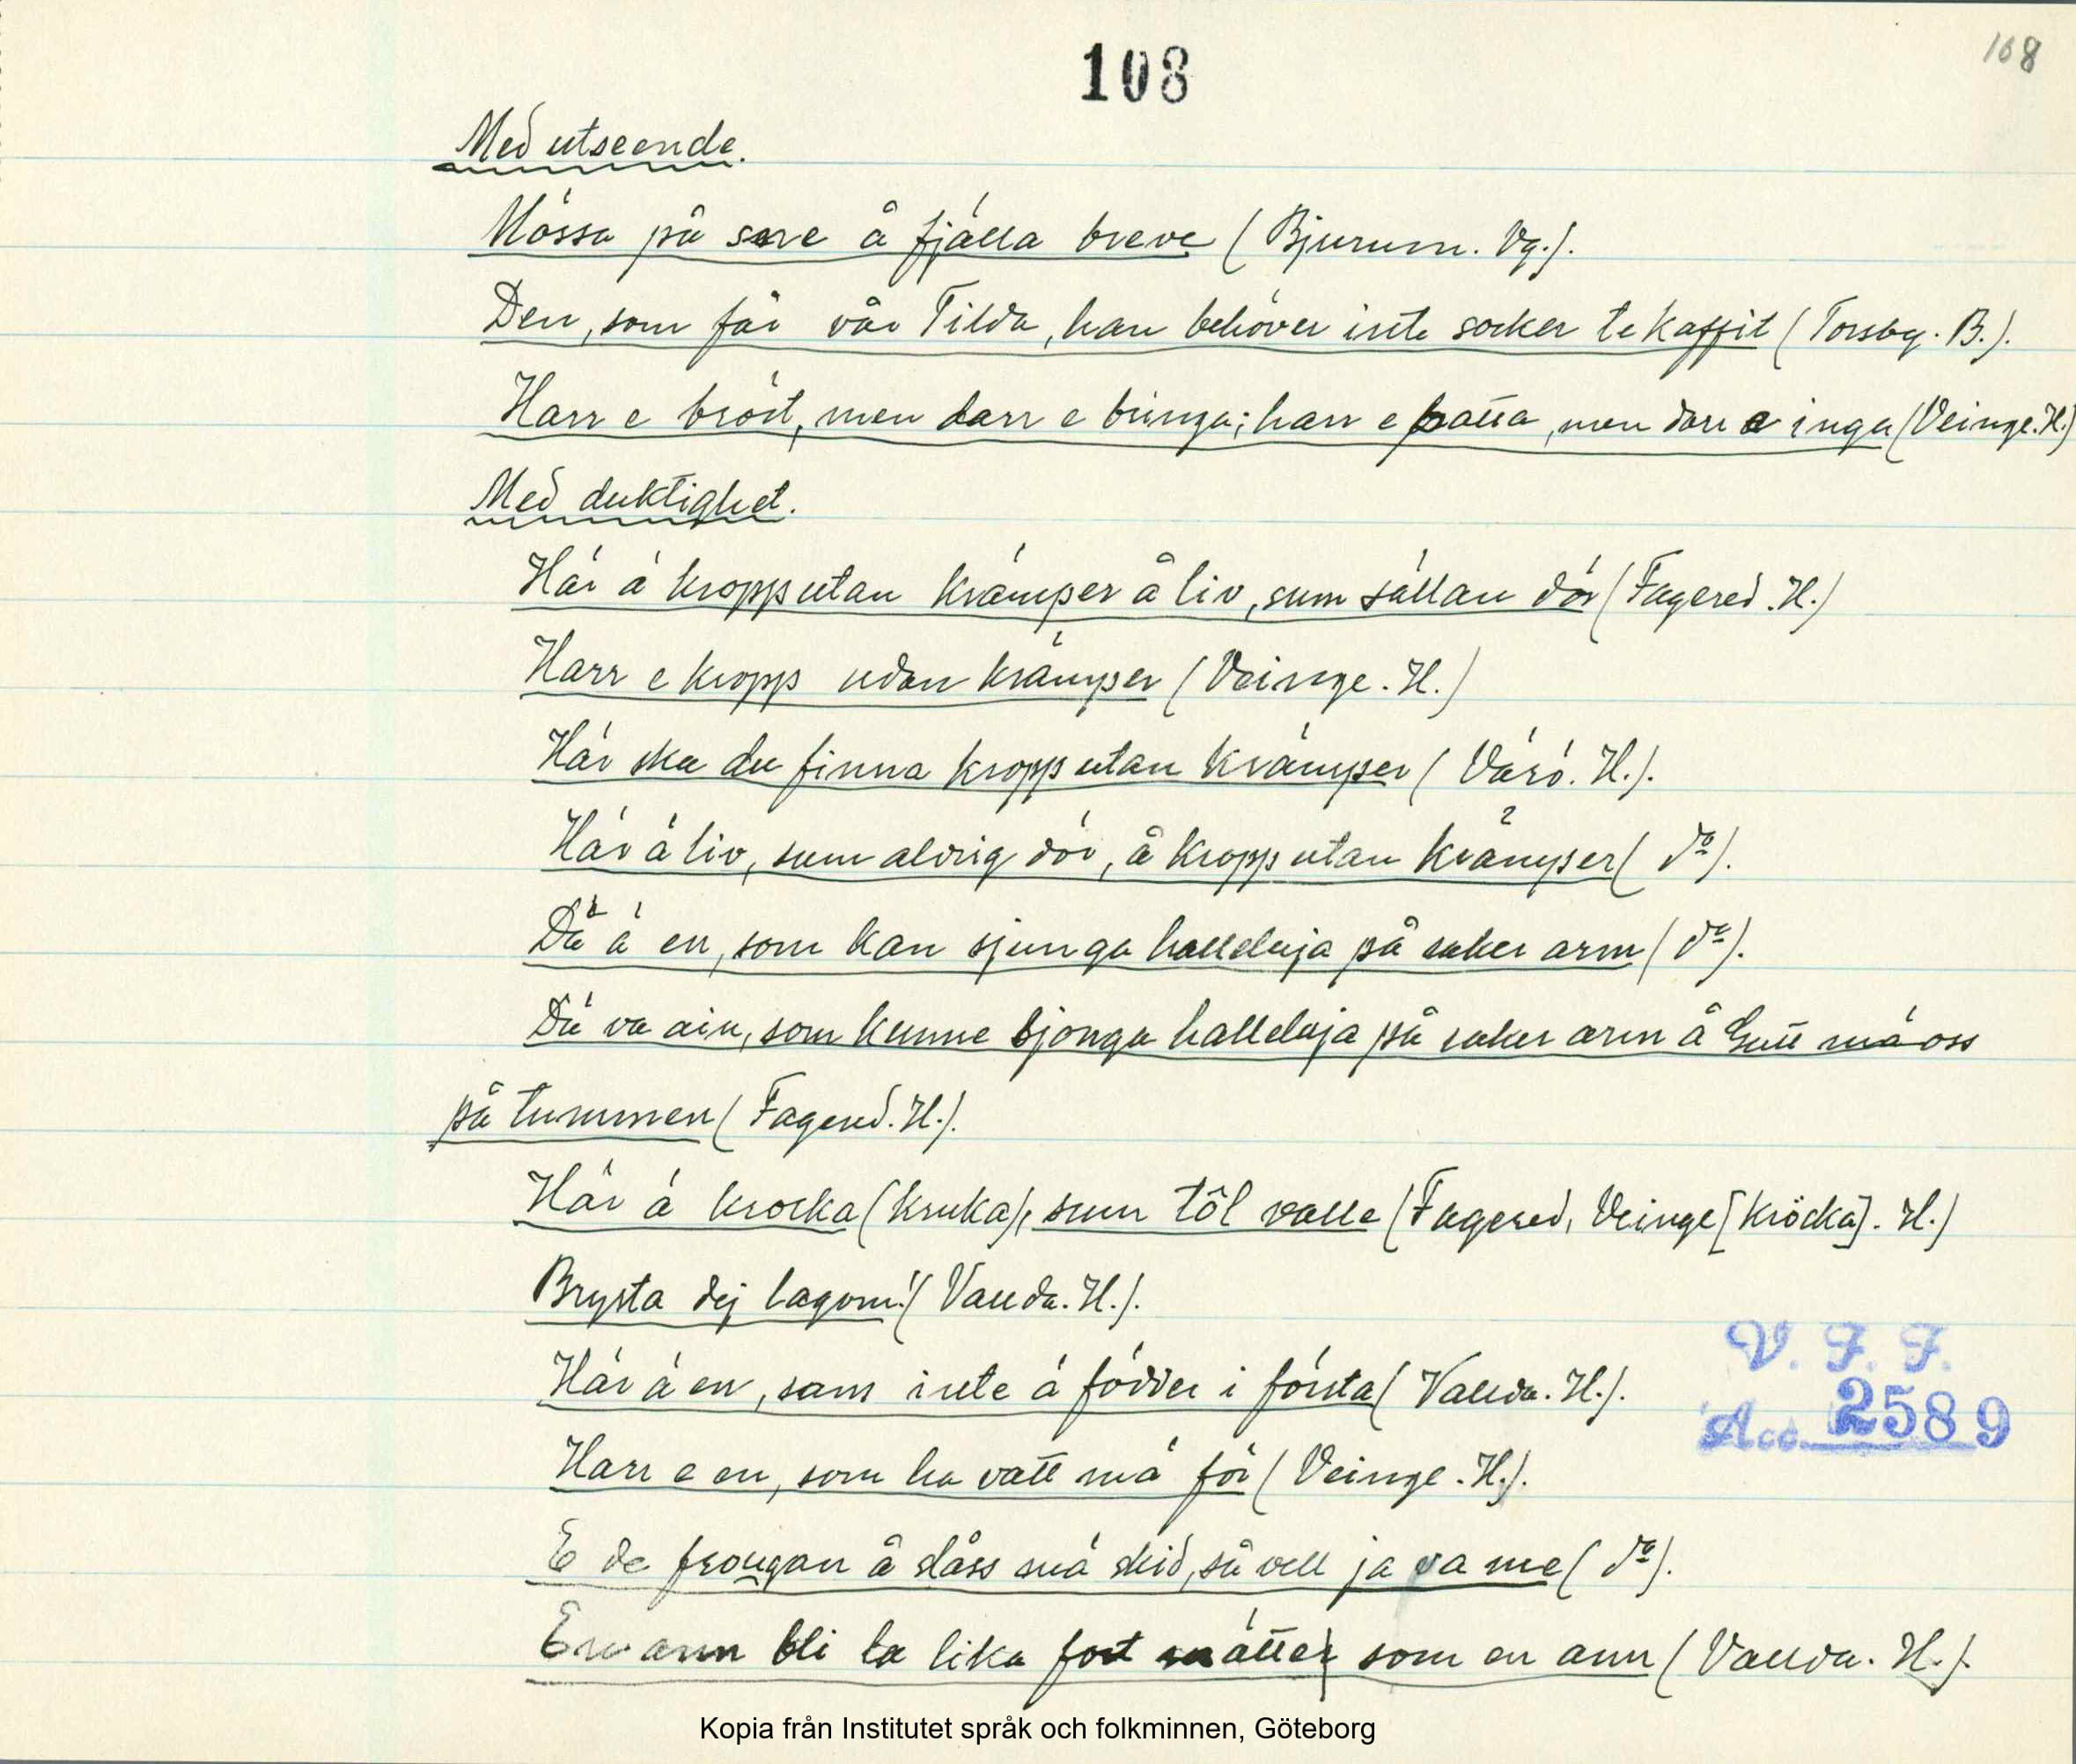 108
108
Med utseende.
Mössa på sne å fjälla breve (Bjurum. Vg.).
Den, som får vår Tilda, han behöver inte socker te kaffit (Torsby. B.).
Harr e bröst, men darr e bringa; harr e patta, men darr e inga (Veinge. H.)
Med duktighet.
Här ä kropp utan krämper å liv, sum sällan dör (Fagered. H.)
Harr e kropp udan krämper (Veinge. H.)
Här ska du finna kropp utan krämper (Värö. H.).
Här ä liv, sum aldrig dör, å kropp utan krämper (do).
Dä ä en, som kan sjunga halleluja på raker arm (do).
Dä va ain, som kunne sjonga halleluja på raker arm å Gutt mä oss
på tummen (Fagered. H.).
Här ä krocka (kruka), sum tôl valle (Fagered, Veinge [kröcka]. H.)
Brysta dej lagom! (Vallda. H.).
Här ä en, som inte ä födder i första (Vallda. H.).
Harr e en, som ha vatt mä för (Veinge. H.).
E de frougan å slåss mä skid, så vell ja va me (do).
En ann bli la lika fort mätter som en ann (Vallda. H.).
V. F. F.
Acc. 2589
Kopia från Institutet språk och folkminnen, Göteborg